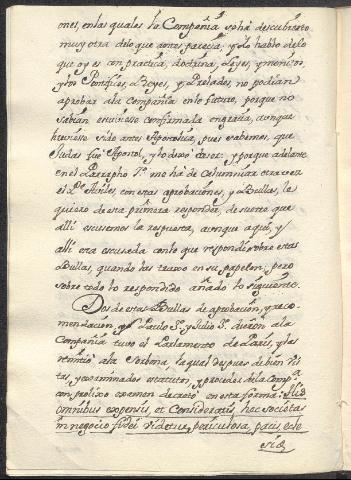 ones, en las quales la Compañia se ha descubierto
muy otra de lo que antes parecia, y solo hablo de lo
que oy es con practica, doctrina, Leyes, y monitos,
y los Pontifices, Reyes, y Prelados no podian
aprobar a la Compañia en lo futuro, porque no
sabian estuviese confirmada en gracia, aunque
huviese sido antes Apostolica, pues sabemos, que
Judas fue Apostol, y lo dexó de ser: y porque adelante
en el Parrapho 7º me há de calumniar otra vez
el Pe. Aviles con estas aprobaciones, y Bullas, le
quiero de esta primera responder, de suerte que
alli escusemos la respuesta, aunque aqui, y
alli era escusada con lo que respondi sobre estas
Bullas, quando las traxo en su papelon, pero
sobre todo lo respondido añado lo siguiente.
Dos de estas Bullas de aprobacion, y reco-
mendacion, que Paulo 3º y Julio 3º dieron a la
Compañia tuvo el Parlamento de Paris, y las
remitio a la Sorbona, la qual despues de bien vis-
tas, y examinados estatutos, y procedes de la Compª
con prolixo examen decretó en esta forma: His
omnibus expensis, et Consideratis, hec societas
in negocio fidei videtur periculosa, pacis ecle
siæ